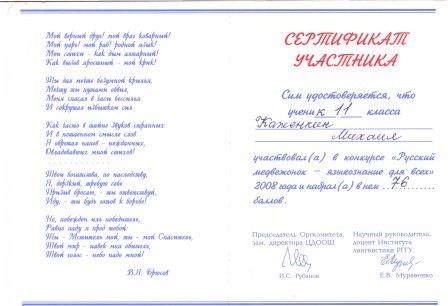 Мой верный друг! мой враг коварный!
Мой царь! мой раб! родной язык!
Мои стихи - как дым алтарный!
Как вызов яростный - мой крик!
Ты дал мечте безумной крылья,
Мечту ты путами обвил,
Меня спасал в часы бессилья
И сокрушал избытком сил.
Как часто в тайне звуков странных
И в потаенном смысле слов
Я обретал напев - нежданных,
Овладевавших мной стихов!
. . . . . . . . . . . .
Твои богатства, по наследству,
Я, дерзкий, требую себе.
Призыв бросаю, - ты ответствуй,
Иду, - ты будь готов к борьбе!
Но, побежден иль победитель,
Равно паду я пред тобой:
Ты - Мститель мой, ты - мой Спаситель,
Твой мир - навек моя обитель,
Твой голос - небо надо мной!
В.Я. Брюсов
СЕРТИФИКАТ
УЧАСТНИКА
Сим удостоверяется, что
ученик 11 класса
Михаил
участвовал(а) в конкурсе «Русский
медвежонок – языкознание для всех»
2008 года и набрал(а) в нем 76
баллов.
Председатель Оргкомитета,
зам. директора ЦДООШ
И.С. Рубанов
Научный руководитель,
доцент Института
лингвистики РГГУ
Е.В. Муравенко